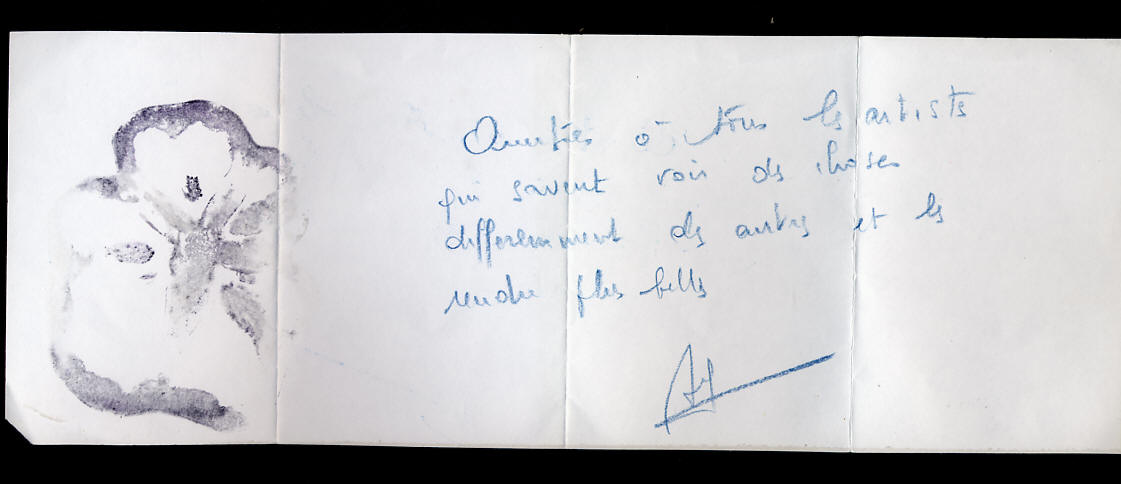 à tous les artists
qui savent voir des choses
differemment des autres et les
rendre plus belles